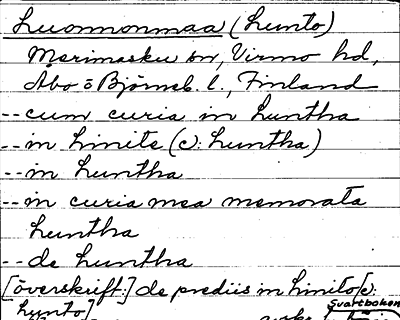 Luonnonmaa (Lunto)
Merimasku sn, Virmo hd,
Åbo o Björneb. l., Finland
-- cum curia in huntha
-- in hinits (ɔ: huntha)
-- in huntha
-- in curia mea memorata
huntha
-- de huntha
[överskrift:] de prediis in hinito[ɔ:
hynto]
Svartboken